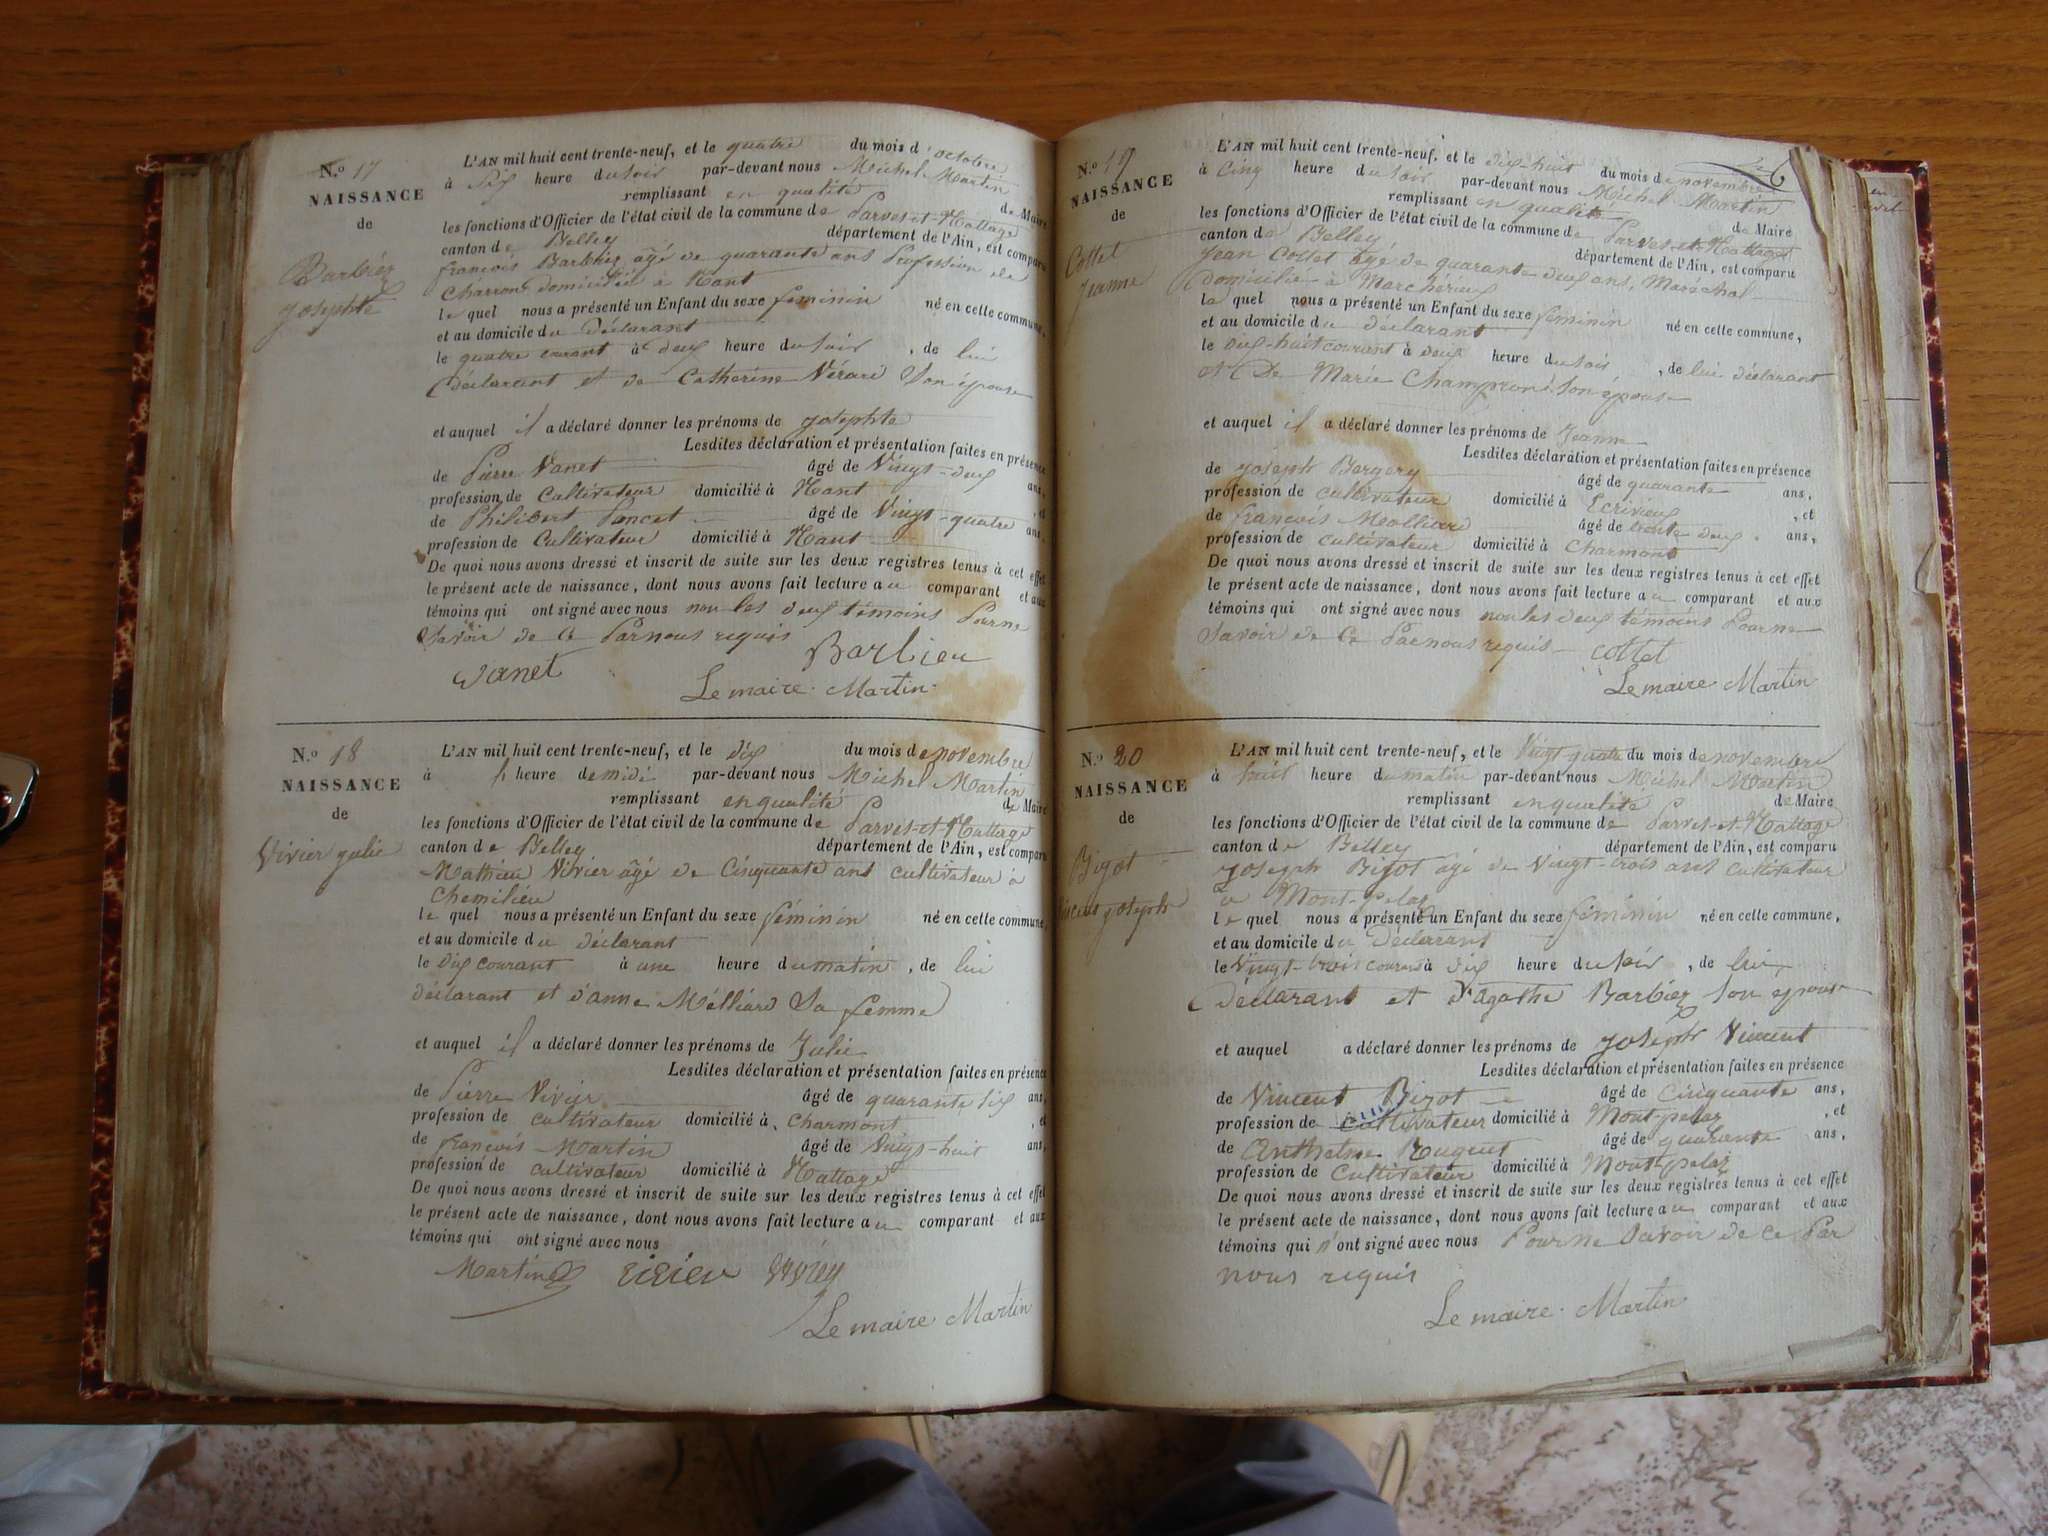 N.o 17
NAISSANCE
de
Barbier
Josephte
L'AN mil huit cent trente-neuf, et le quatre du mois d'octobre
à six heure du soir par-devant nous Michel Martin
remplissant en qualité de Maire
les fonctions d'Officier de l'état civil de la commune de Parves-et-Nattage
canton de Belley département de l'Ain, est comparu
françois Barbier âgé de quarante ans Profession de
Charron domicilié à Nant
le quel nous a présenté un Enfant du sexe féminin né en cette commune,
et au domicile du Déclarant
le quatre courant à deux heure du soir, de lui
déclarant et de Catherine Verard son épouse
et auquel il a déclaré donner les prénoms de Josephte
Lesdites déclaration et présentation faites en présence
de Pierre Vanet âgé de Vingt-deux ans,
profession de Cultivateur domicilié à Nant, et
de Philibert Poncet âgé de Vingt-quatre ans,
profession de Cultivateur domicilié à Nant
De quoi nous avons dressé et inscrit de suite sur les deux registres tenus à cet effet
le présent acte de naissance, dont nous avons fait lecture au comparant et aux
témoins qui ont signé avec nous non les deux témoins Pour ne
Savoir de ce Par nous requis
Vanet Barbier
Le maire Martin
N.o 18
NAISSANCE
de
Vivier julie
L'AN mil huit cent trente-neuf, et le dix du mois de novembre
à heure de midi par-devant nous Michel Martin
remplissant en qualité de Maire
les fonctions d'Officier de l'état civil de la commune de Parves-et-Nattage
canton de Belley département de l'Ain, est comparu
Mathieu Vivier âgé de Cinquante ans cultivateur à
Chemilieu
le quel nous a présenté un Enfant du sexe féminin né en cette commune,
et au domicile du déclarant
le dix courant à une heure du matin, de lui
déclarant et d'anne Mélliard Sa femme
et auquel il a déclaré donner les prénoms de Julie
Lesdites déclaration et présentation faites en présence
de Pierre Vivier âgé de quarante six ans,
profession de cultivateur domicilié à Charmont, et
de françois Martin âgé de Vingt-huit ans,
profession de cultivateur domicilié à Nattage
De quoi nous avons dressé et inscrit de suite sur les deux registres tenus à cet effet
le présent acte de naissance, dont nous avons fait lecture au comparant et aux
témoins qui ont signé avec nous
Martin Vivier Vivier
Le maire Martin
N.o 19
NAISSANCE
de
Cottet
Jeanne
L'AN mil huit cent trente-neuf, et le dix-huit du mois de novembre
à Cinq heure du soir par-devant nous Michel Martin
remplissant en qualité de Maire
les fonctions d'Officier de l'état civil de la commune de Parves-et-Nattage
canton de Belley département de l'Ain, est comparu
Jean Cottet âgé de quarante-deux ans, Maréchal
domicilié à
le quel nous a présenté un Enfant du sexe féminin né en cette commune,
et au domicile du déclarant
le dix-huit courant à deux heure du soir, de lui déclarant
et De Marie son épouse
et auquel il a déclaré donner les prénoms de Jeanne
Lesdites déclaration et présentation faites en présence
de joseph Bergery âgé de quarante ans,
profession de cultivateur domicilié à Ecrivieux, et
de françois Molliard âgé de trente deux ans,
profession de cultivateur domicilié à Charmont
De quoi nous avons dressé et inscrit de suite sur les deux registres tenus à cet effet
le présent acte de naissance, dont nous avons fait lecture au comparant et aux
témoins qui ont signé avec nous non les deux témoins Pour ne
Savoir de ce Par nous requis Cottet
Le maire Martin
N.o 20
NAISSANCE
de
Bigot
Vincent joseph
L'AN mil huit cent trente-neuf, et le Vingt quatre du mois de novembre
à huit heure du matin par-devant nous Michel Martin
remplissant en qualité de Maire
les fonctions d'Officier de l'état civil de la commune de Parves-et-Nattage
canton de Belley département de l'Ain, est comparu
joseph Bigot âgé de Vingt-trois ans cultivateur
à Mont-pelaz
le quel nous a présenté un Enfant du sexe féminin né en cette commune,
et au domicile du Déclarant
le Vingt-trois courant à dix heure du soir, de lui
Déclarant et d'agathe Barbier son épouse
et auquel a déclaré donner les prénoms de joseph Vincent
Lesdites déclaration et présentation faites en présence
de Vincent Bigot âgé de cinquante ans,
profession de cultivateur domicilié à Mont-pelaz, et
de Anthelme Huguet âgé de quarante ans,
profession de Cultivateur domicilié à Mont-pelaz
De quoi nous avons dressé et inscrit de suite sur les deux registres tenus à cet effet
le présent acte de naissance, dont nous avons fait lecture au comparant et aux
témoins qui n'ont signé avec nous Pour ne Savoir de ce Par
nous requis
Le maire Martin